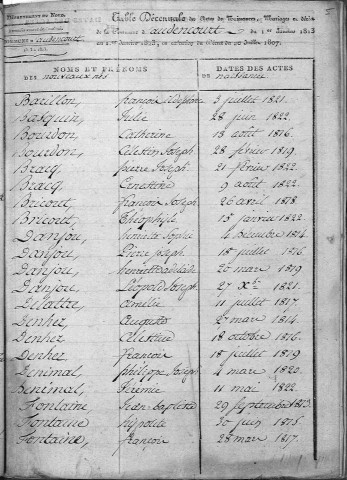 DÉPARTEMENT DU NORD.
Table Décennale des Actes de Naissances, Mariages et décès
de la Commune d'audencourt du 1.er Janvier 1813
au 1.er Janvier 1823, en exécution du Décret du 20 Juillet 1807.
NOMS ET PRÉNOMS DATES DES ACTES
DES nouveaux nés DE naissance
Barillon, françois 3 juillet 1821.
Basquin, Julie 28 juin 1822.
Bourdon, Catherine 18 août 1816.
Bourdon, Celestin Joseph 28 février 1819.
Bracq, pierre Joseph 21 février 1822.
Bracq, Ernestine 9 août 1822.
Bricout, françois Joseph 26 avril 1818.
Bricout, Théophile 13 janvier 1822.
Danjou, Sophie 4 décembre 1814.
Danjou, Pierre Joseph 18 juillet 1816.
Danjou, henriette adélaïde 26 mars 1819
Danjou, Léopold Joseph 27 Xbre 1821.
Delattre, amélie 11 juillet 1817.
Denhez, auguste 27 mars 1814.
Denhez Celestine 18 octobre 1816.
Denhez françois 18 juillet 1819
Denimal, philippe Joseph 4 mars 1820.
Denimal, 11 mai 1822.
Fontaine, Jean-baptiste 29 Septembre 1813.
Fontaine hypolite 30 juin 1815
Fontaine, françois 28 mars 1817.